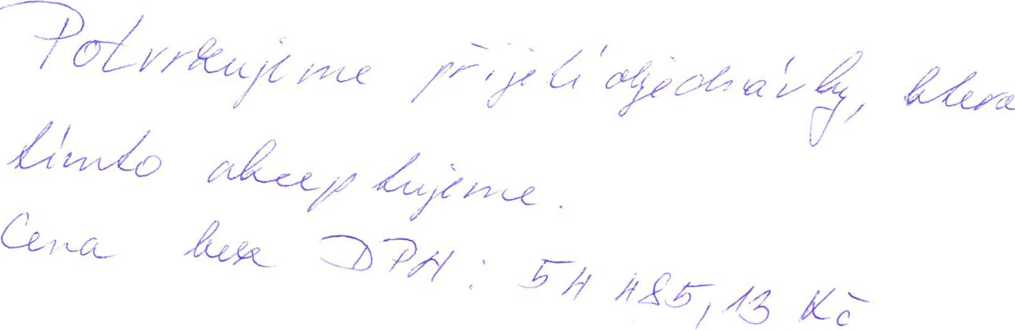 Potvrzujeme přijetí objednávky, která
tímto akceptujeme.
Cena bez DPH: 54 485,13 Kč